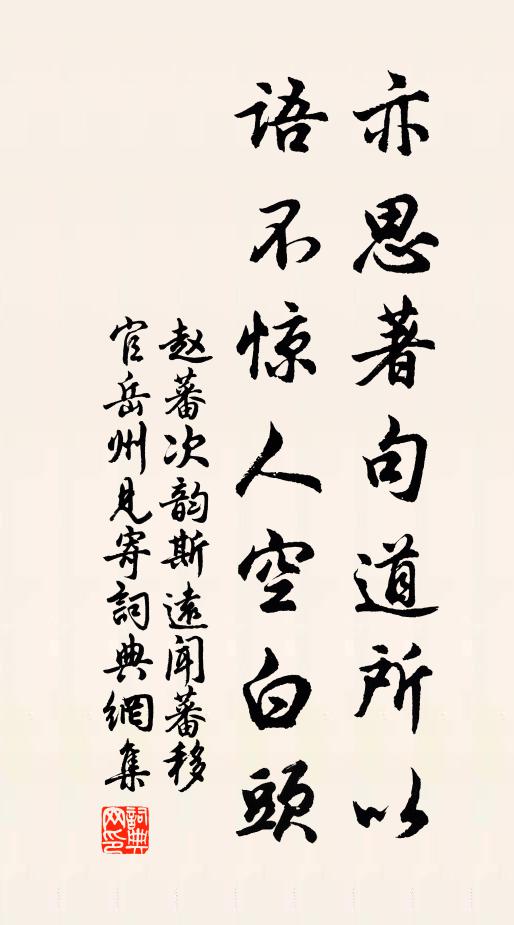 亦思著句道所以
语不惊人空白頭
赵蕃次韵斯遠闻蕃移
官岳州见寄詞典網集
詞典网印